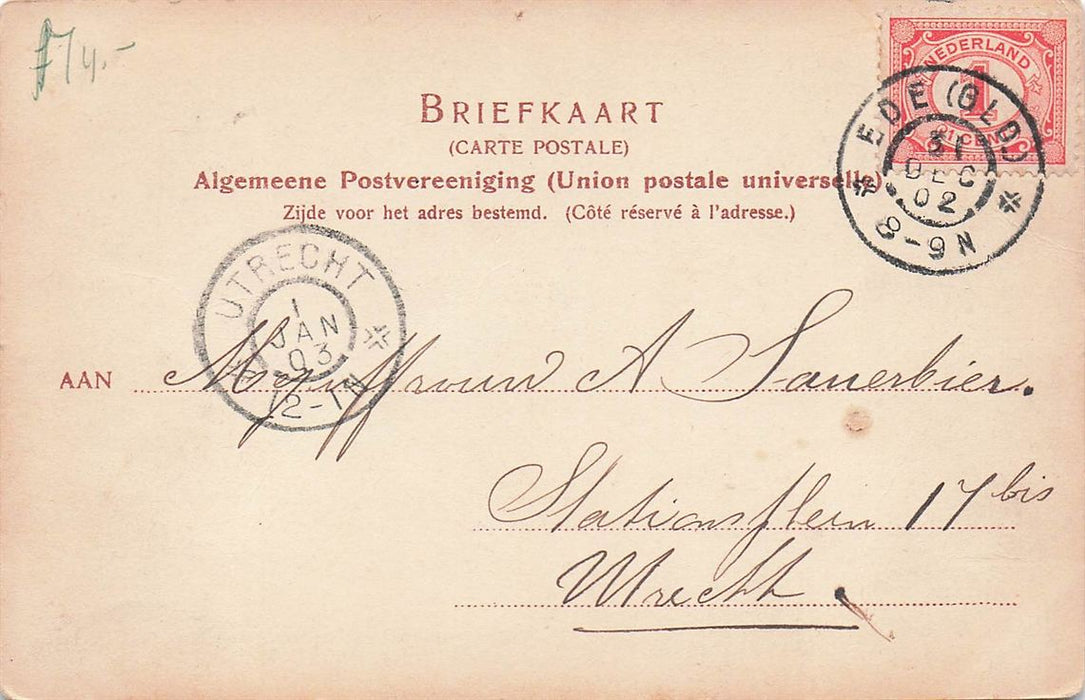 f 14.-
NEDERLAND
1
1 CENT
EDE (GLD)
31
DEC
02
8-9N
BRIEFKAART
(CARTE POSTALE)
Algemeene Postvereeniging (Union postale universelle)
Zijde voor het adres bestemd. (Côté réservé à l'adresse.)
UTRECHT
1
JAN
03
12-1N
AAN Mejuffrouw A Sauerbier.
Stationsplein 17 bis
Utrecht.